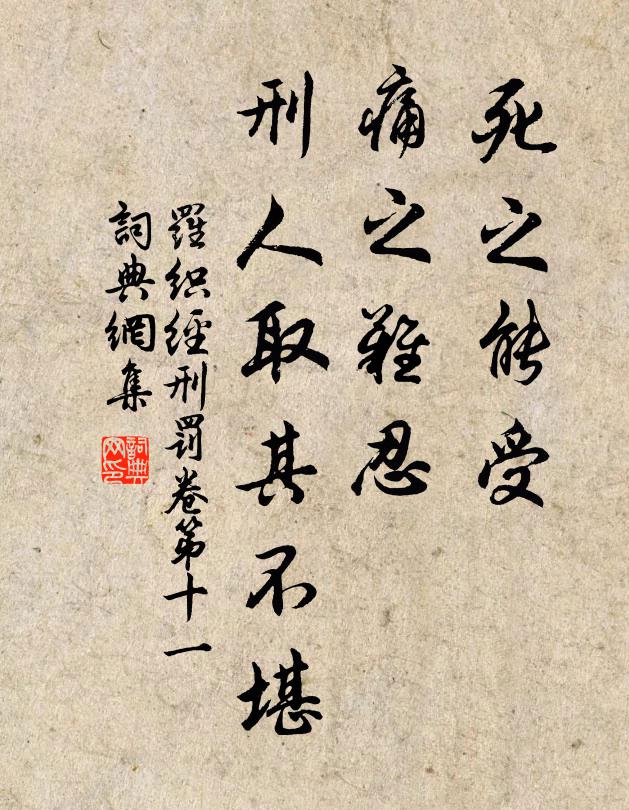 死之能受
痛之難忍
刑人取其不堪
羅织經刑罰卷第十一
詞典網集
詞典网印